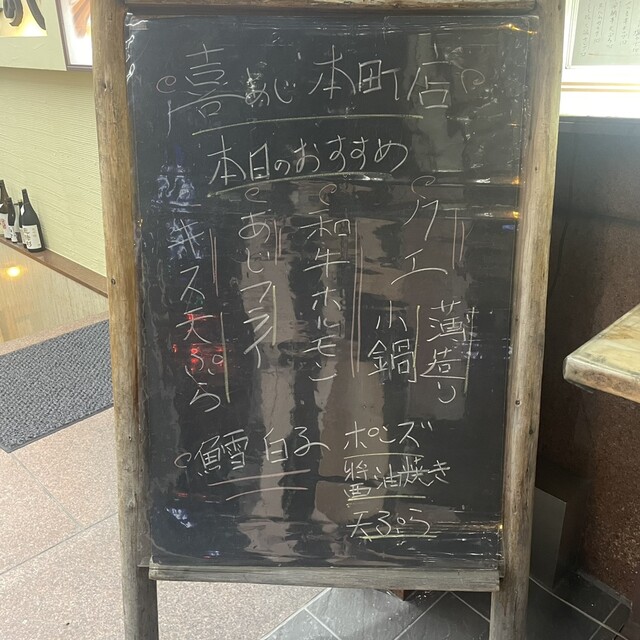 喜あじ 本町店
本日のおすすめ
クエ
薄造り
小鍋
和牛ホルモン
あじフライ
キス天ぷら
鱈白子
ポンズ
醤油焼き
天ぷら